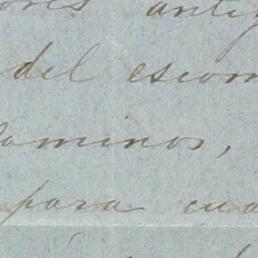 ores antig
del escom
caminos,
para cua